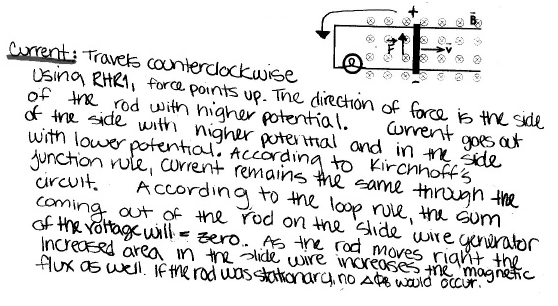 +
B
F
v
Current: Travels counterclockwise
Using RHR1, force points up. The direction of force is the side
of the rod with higher potential. Current goes out
of the side with higher potential and in the side
with lower potential. According to Kirchhoff's
junction rule, current remains the same through the
circuit. According to the loop rule, the sum
coming out of the rod on the slide wire generator
of the voltage will = zero. As the rod moves right the
increased area in the slide wire increases the magnetic
flux as well. If the rod was stationary, no ΔΦB would occur.
-